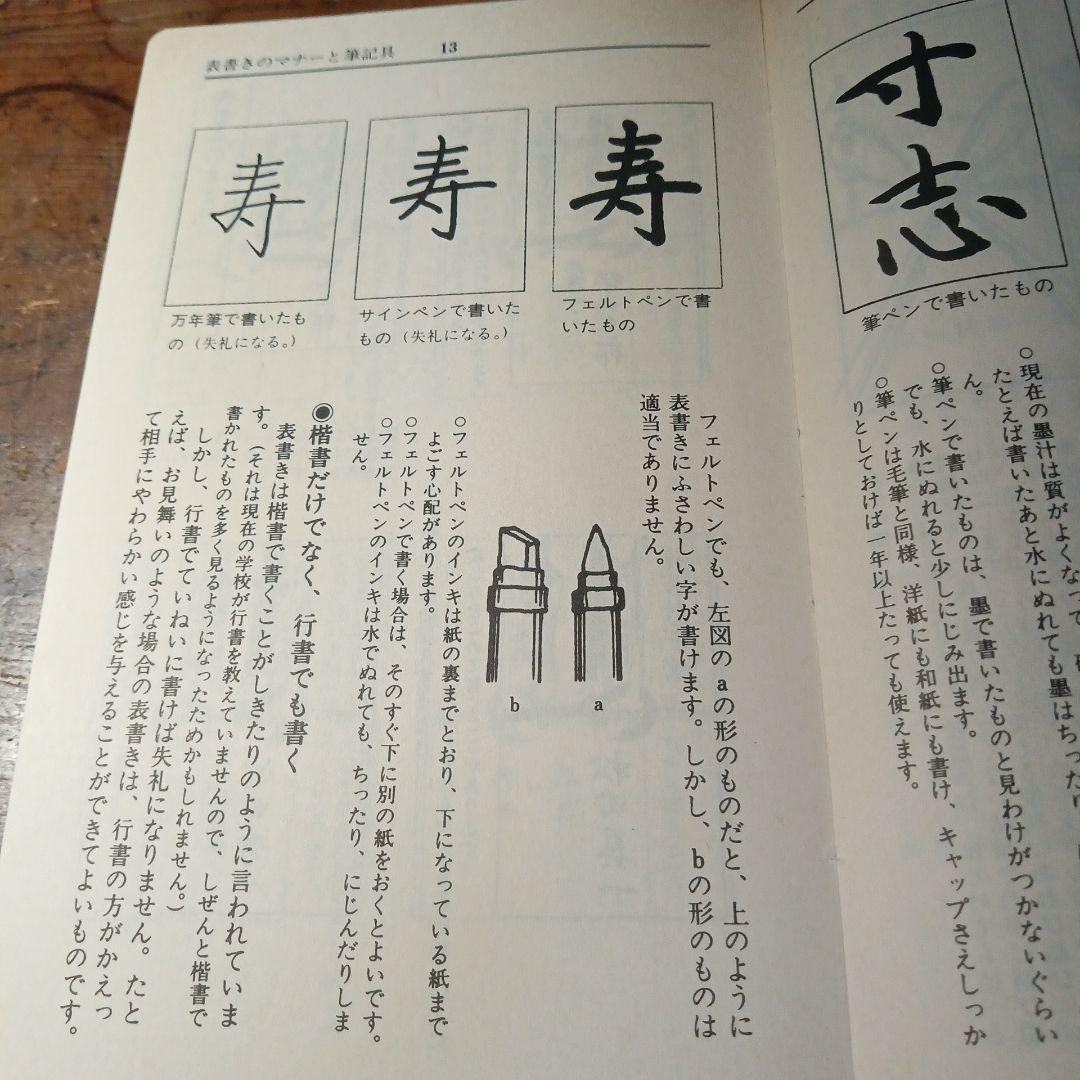 寸
志
筆ペンで書いたもの
○現在の墨汁は質がよくなって、
たとえば書いたあと水にぬれても墨はちったり
ん。
○筆ペンで書いたものは、墨で書いたものと見わけがつかないぐらい
でも、水にぬれると少しにじみ出ます。
○筆ペンは毛筆と同様、洋紙にも和紙にも書け、キャップさえしっか
りとしておけば一年以上たっても使えます。
表書きのマナーと筆記具 13
寿
フェルトペンで書
いたもの
寿
サインペンで書いた
もの（失礼になる。）
寿
万年筆で書いたも
の（失礼になる。）
フェルトペンでも、左図のaの形のものだと、上のように
表書きにふさわしい字が書けます。しかし、bの形のものは
適当でありません。
a
b
○フェルトペンのインキは紙の裏までとおり、下になっている紙まで
よごす心配があります。
○フェルトペンで書く場合は、そのすぐ下に別の紙をおくとよいです。
○フェルトペンのインキは水でぬれても、ちったり、にじんだりしま
せん。
◉楷書だけでなく、行書でも書く
表書きは楷書で書くことがしきたりのように言われていま
す。（それは現在の学校が行書を教えていませんので、しぜんと楷書で
書かれたものを多く見るようになったためかもしれません。）
しかし、行書でていねいに書けば失礼になりません。たと
えば、お見舞いのような場合の表書きは、行書の方がかえっ
て相手にやわらかい感じを与えることができてよいものです。